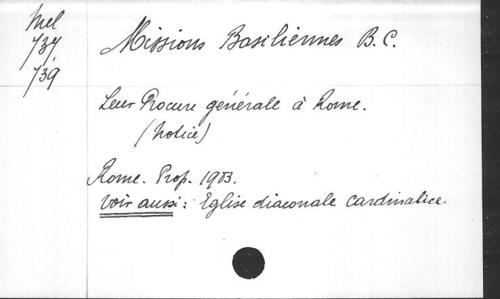 Mel
737
739
Missions Basiliennes B.C.
Leur Procure générale à Rome.
(Notice)
Rome. Prop. 1903.
Voir aussi : Eglise diaconale cardinalice.